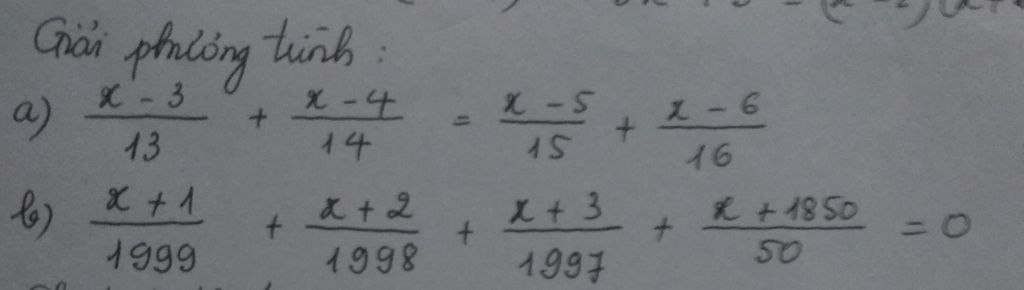 Giải phương trình :
a) x - 3 / 13 + x - 4 / 14 = x - 5 / 15 + x - 6 / 16
b) x + 1 / 1999 + x + 2 / 1998 + x + 3 / 1997 + x + 1850 / 50 = 0